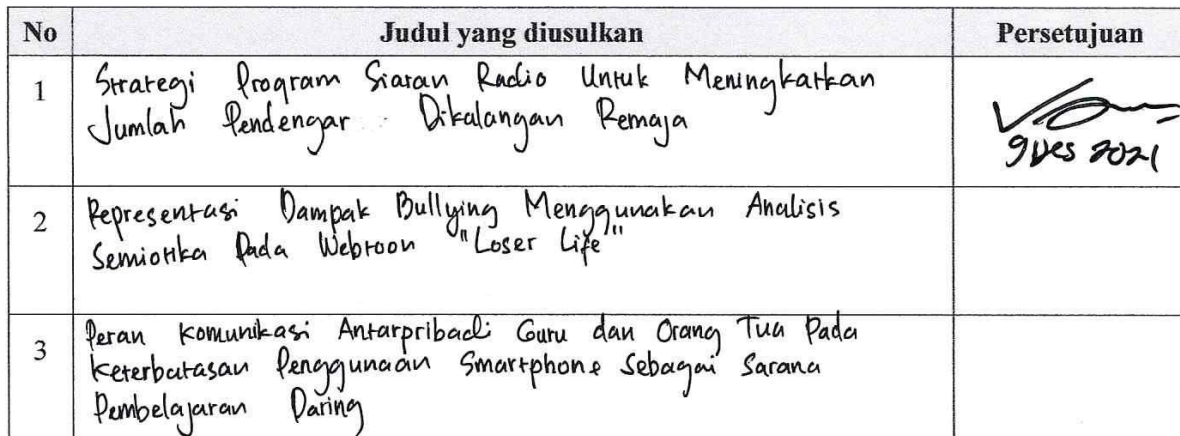 No Judul yang diusulkan Persetujuan
1 Strategi Program Siaran Radio Untuk Meningkatkan
Jumlah Pendengar Dikalangan Remaja
9 Des 2021
2 Representasi Dampak Bullying Menggunakan Analisis
Semiotika Pada Webtoon "Loser Life"
3 Peran Komunikasi Antarpribadi Guru dan Orang Tua Pada
Keterbatasan Penggunaan Smartphone Sebagai Sarana
Pembelajaran Daring